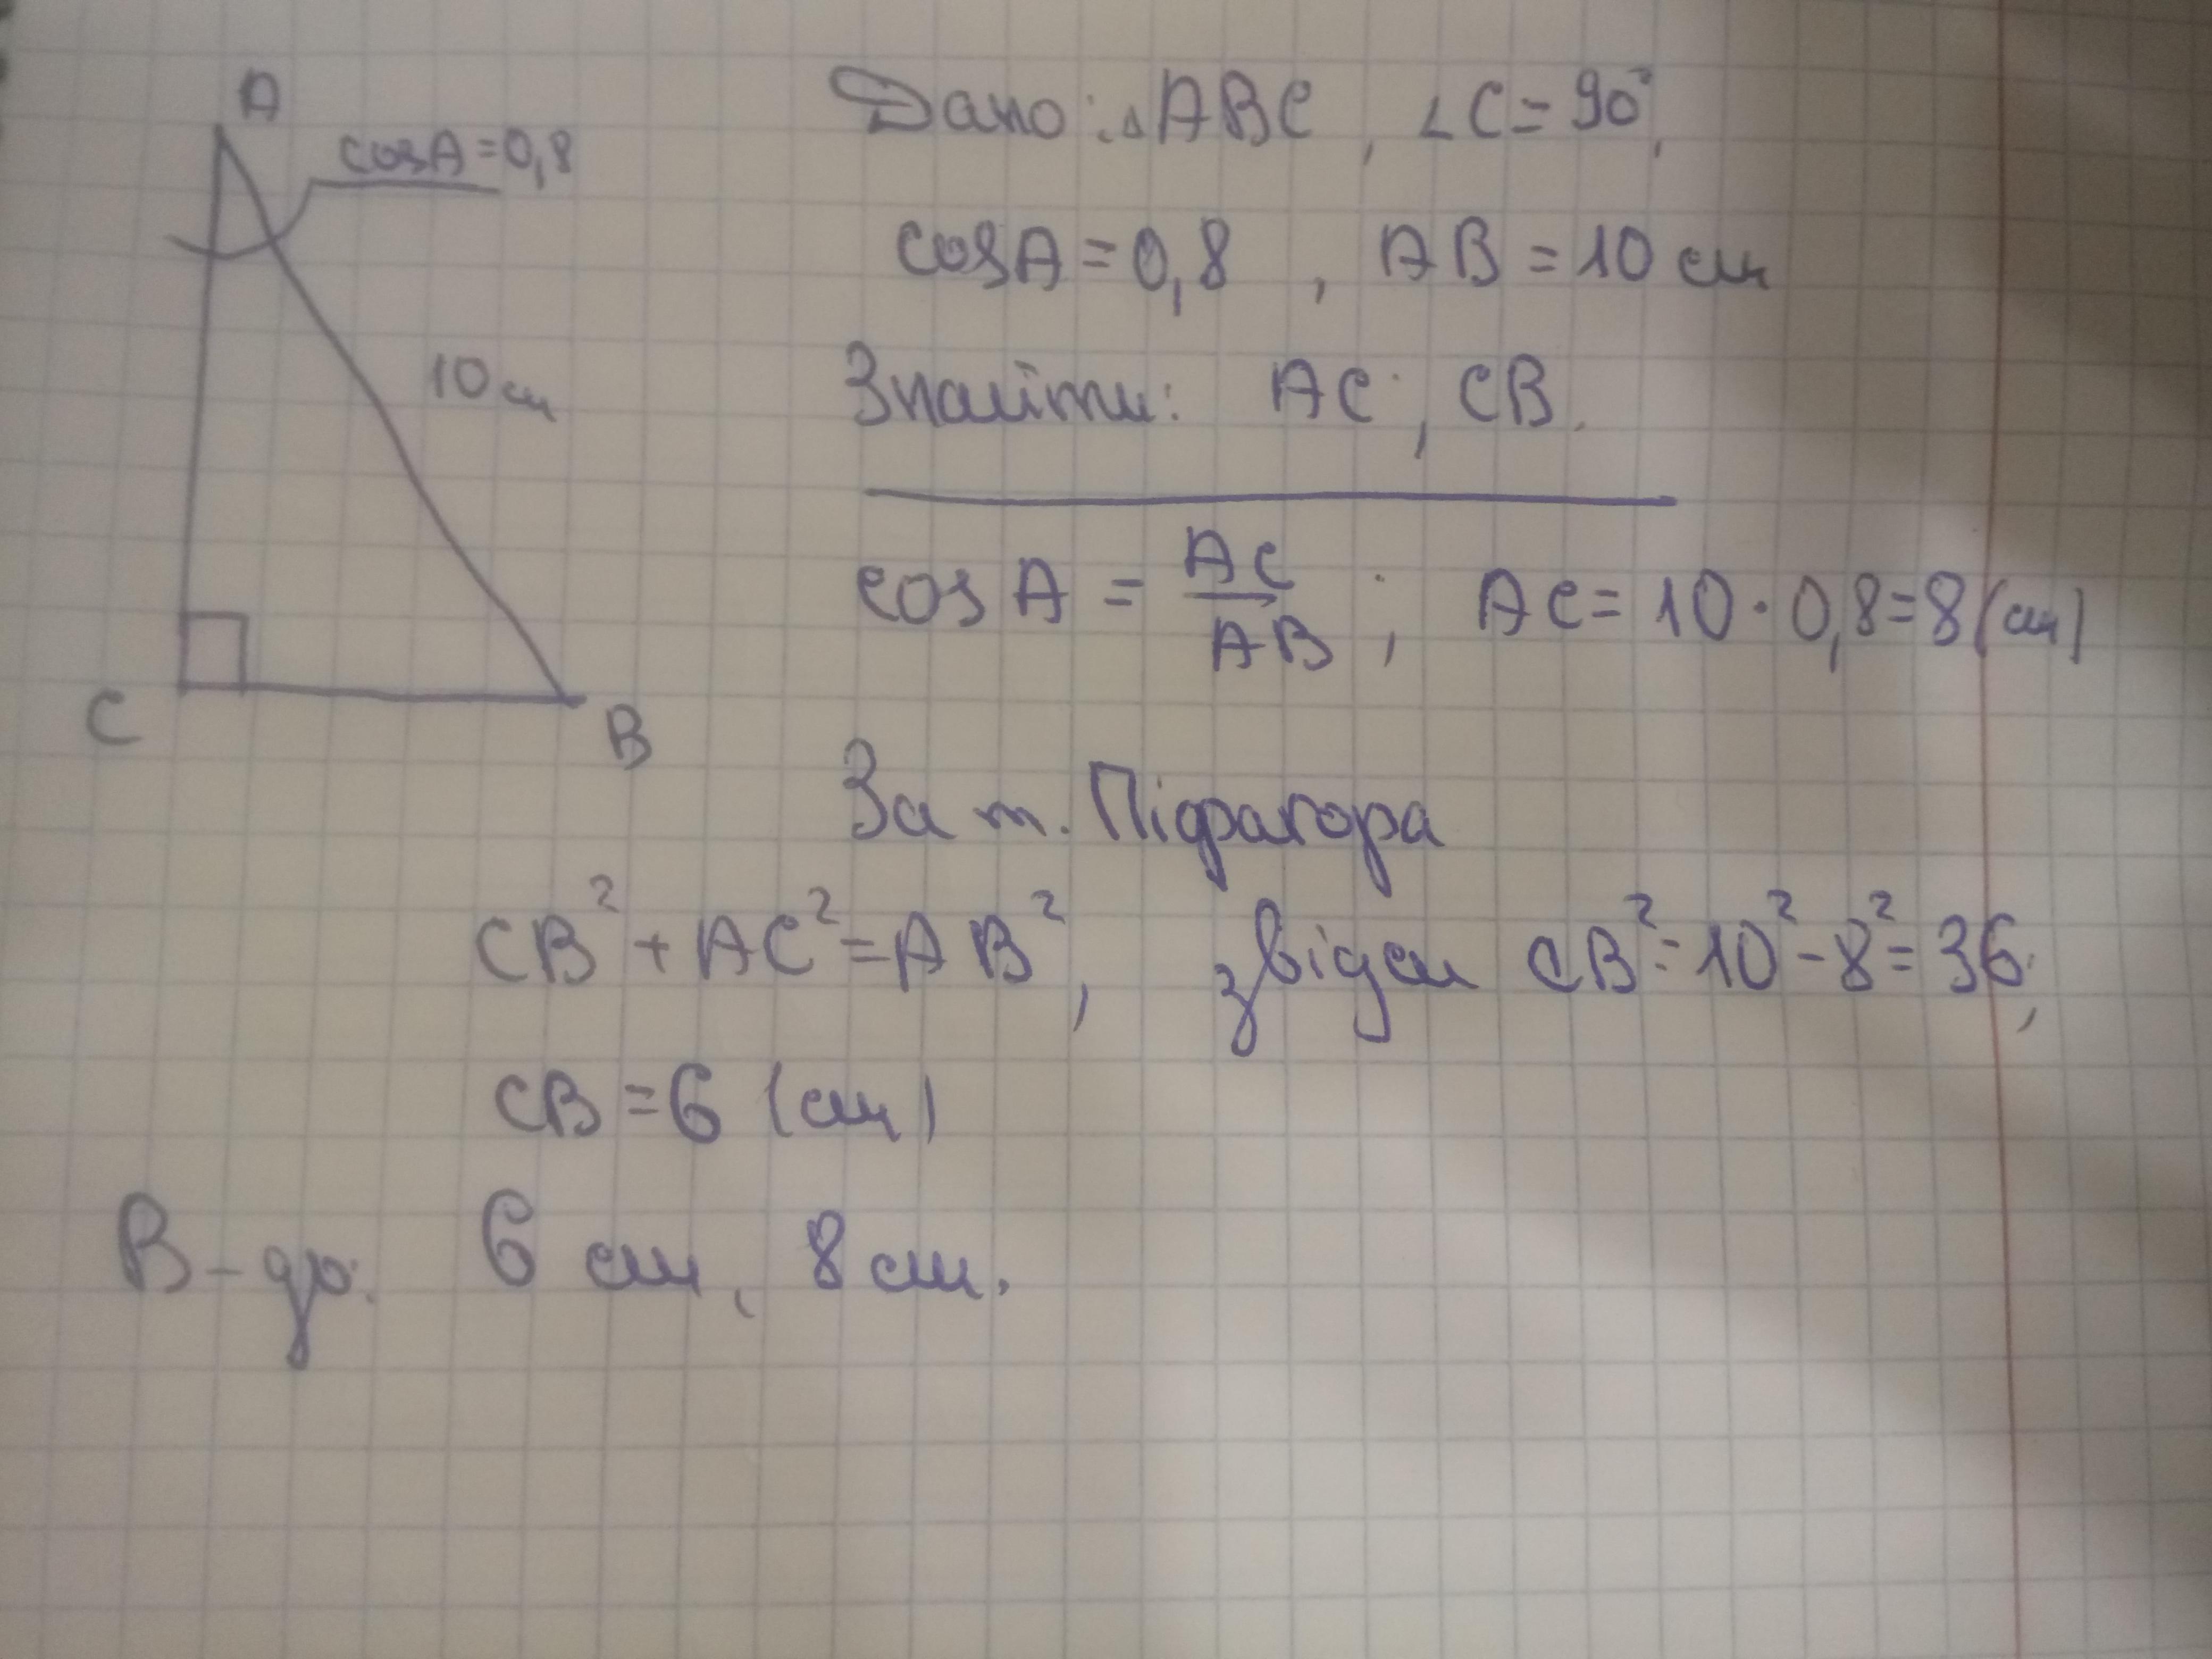 A
cosA=0,8
10 см
C
B
Дано: △ABC, ∠C=90°,
cosA=0,8, AB=10 см
Знайти: AC, CB.
cos A = AC/AB; AC=10·0,8=8(см)
За т. Піфагора
CB²+AC²=AB², звідси CB²=10²-8²=36;
CB=6 (см)
В-дь: 6 см, 8 см.